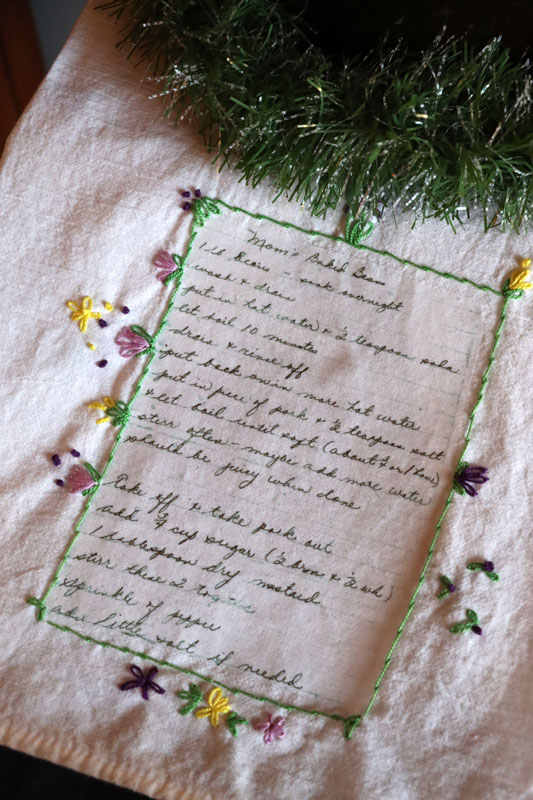 Mom's Baked Beans
1 lb Beans - soak overnight
wash & drain
put in hot water & ½ teaspoon soda
let boil 10 minutes
drain & rinse off
put back on in more hot water
put in piece of pork & ½ teaspoon salt
& let boil until soft (about 1 hour)
stirr often - maybe add more water
should be juicy when done
Take off & take pork out
add ¾ cup sugar (½ brn & ½ wh)
1 teaspoon dry mustard
stir these 2 together
sprinkle of pepper
little salt if needed